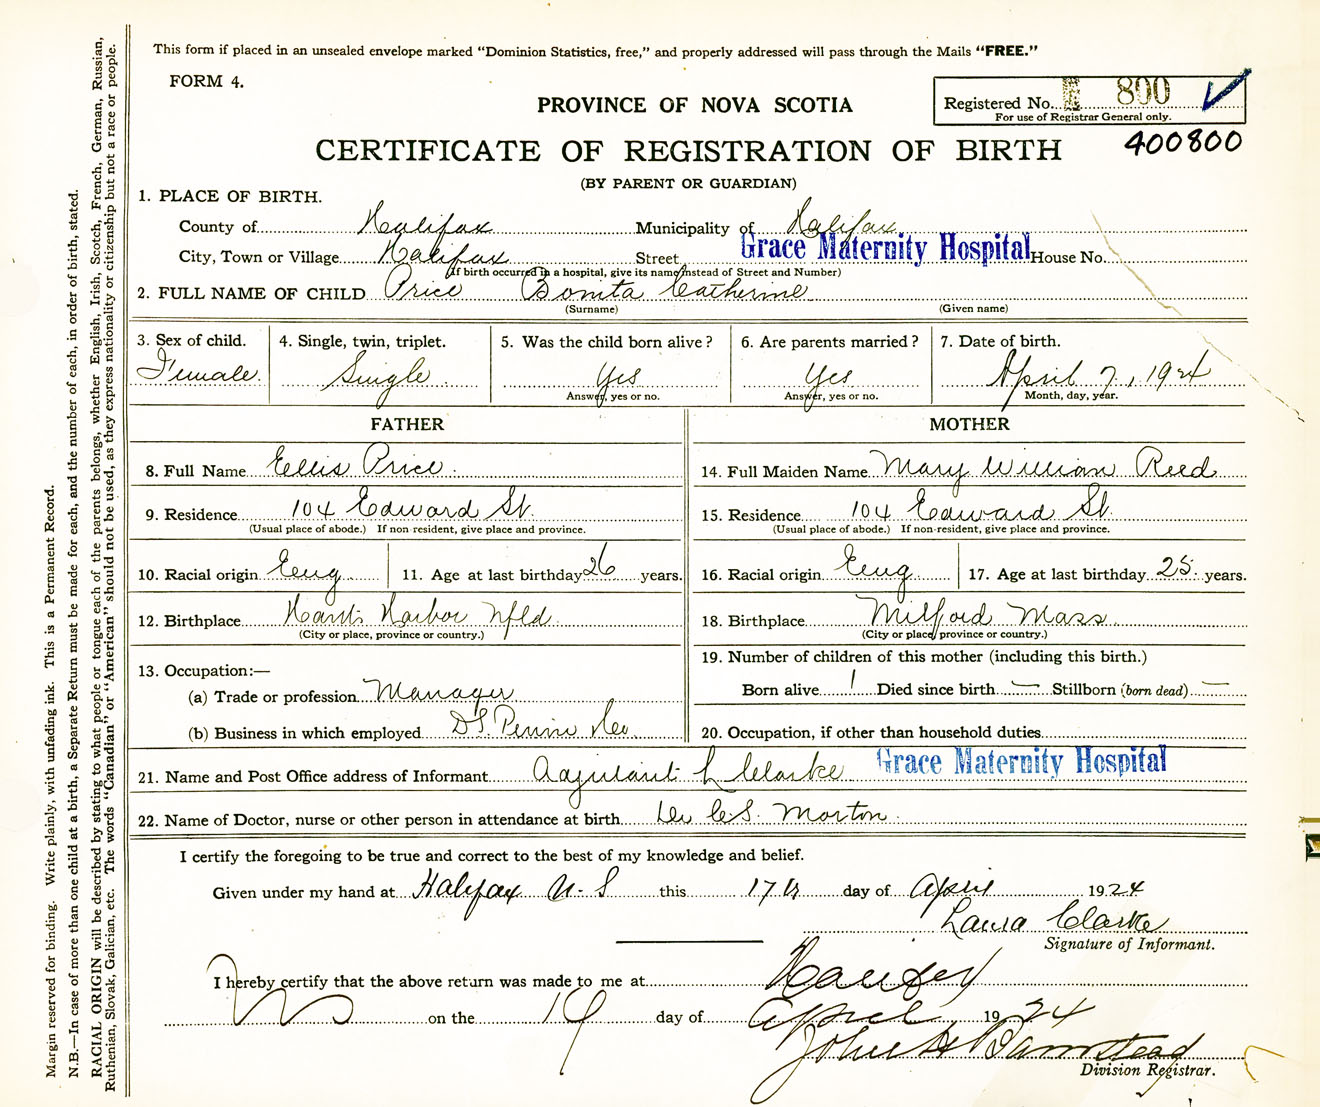 This form if placed in an unsealed envelope marked “Dominion Statistics, free,” and properly addressed will pass through the Mails “FREE.”
FORM 4.
Registered No. 800
For use of Registrar General only.
PROVINCE OF NOVA SCOTIA
400800
CERTIFICATE OF REGISTRATION OF BIRTH
(BY PARENT OR GUARDIAN)
1. PLACE OF BIRTH.
County of Halifax Municipality of Halifax
City, Town or Village Halifax Street Grace Maternity Hospital House No.
(If birth occurred in a hospital, give its name instead of Street and Number)
2. FULL NAME OF CHILD Price Bonita Catherine
(Surname) (Given name)
3. Sex of child. 4. Single, twin, triplet. 5. Was the child born alive? 6. Are parents married? 7. Date of birth.
Female. Single Yes Yes April 7, 1924
Answer, yes or no. Answer, yes or no. Month, day, year.
FATHER MOTHER
8. Full Name Ellis Price. 14. Full Maiden Name Mary William Reed
9. Residence 104 Edward St. 15. Residence 104 Edward St.
(Usual place of abode.) If non-resident, give place and province. (Usual place of abode.) If non-resident, give place and province.
10. Racial origin Eng 11. Age at last birthday 26 years. 16. Racial origin Eng 17. Age at last birthday 25 years.
12. Birthplace Hants Harbor Nfld. 18. Birthplace Milford Mass.
(City or place, province or country.) (City or place, province or country.)
13. Occupation:— 19. Number of children of this mother (including this birth.)
(a) Trade or profession Manager Born alive 1 Died since birth — Stillborn (born dead) —
(b) Business in which employed 20. Occupation, if other than household duties
21. Name and Post Office address of Informant Adjutant L Clarke Grace Maternity Hospital
22. Name of Doctor, nurse or other person in attendance at birth Morton.
I certify the foregoing to be true and correct to the best of my knowledge and belief.
Given under my hand at Halifax N.S this 17th day of April 1924
Laura Clarke
Signature of Informant.
I hereby certify that the above return was made to me at Halifax
NS on the 19 day of April 1924
John H Barnstead
Division Registrar.
Margin reserved for binding. Write plainly, with unfading ink. This is a Permanent Record.
N.B.—In case of more than one child at a birth, a Separate Return must be made for each, and the number of each, in order of birth, stated.
RACIAL ORIGIN will be described by stating to what people or tongue each of the parents belongs, whether English, Irish, Scotch, French, German, Russian,
Ruthenian, Slovak, Galician, etc. The words “Canadian” or “American” should not be used, as they express nationality or citizenship but not a race or people.